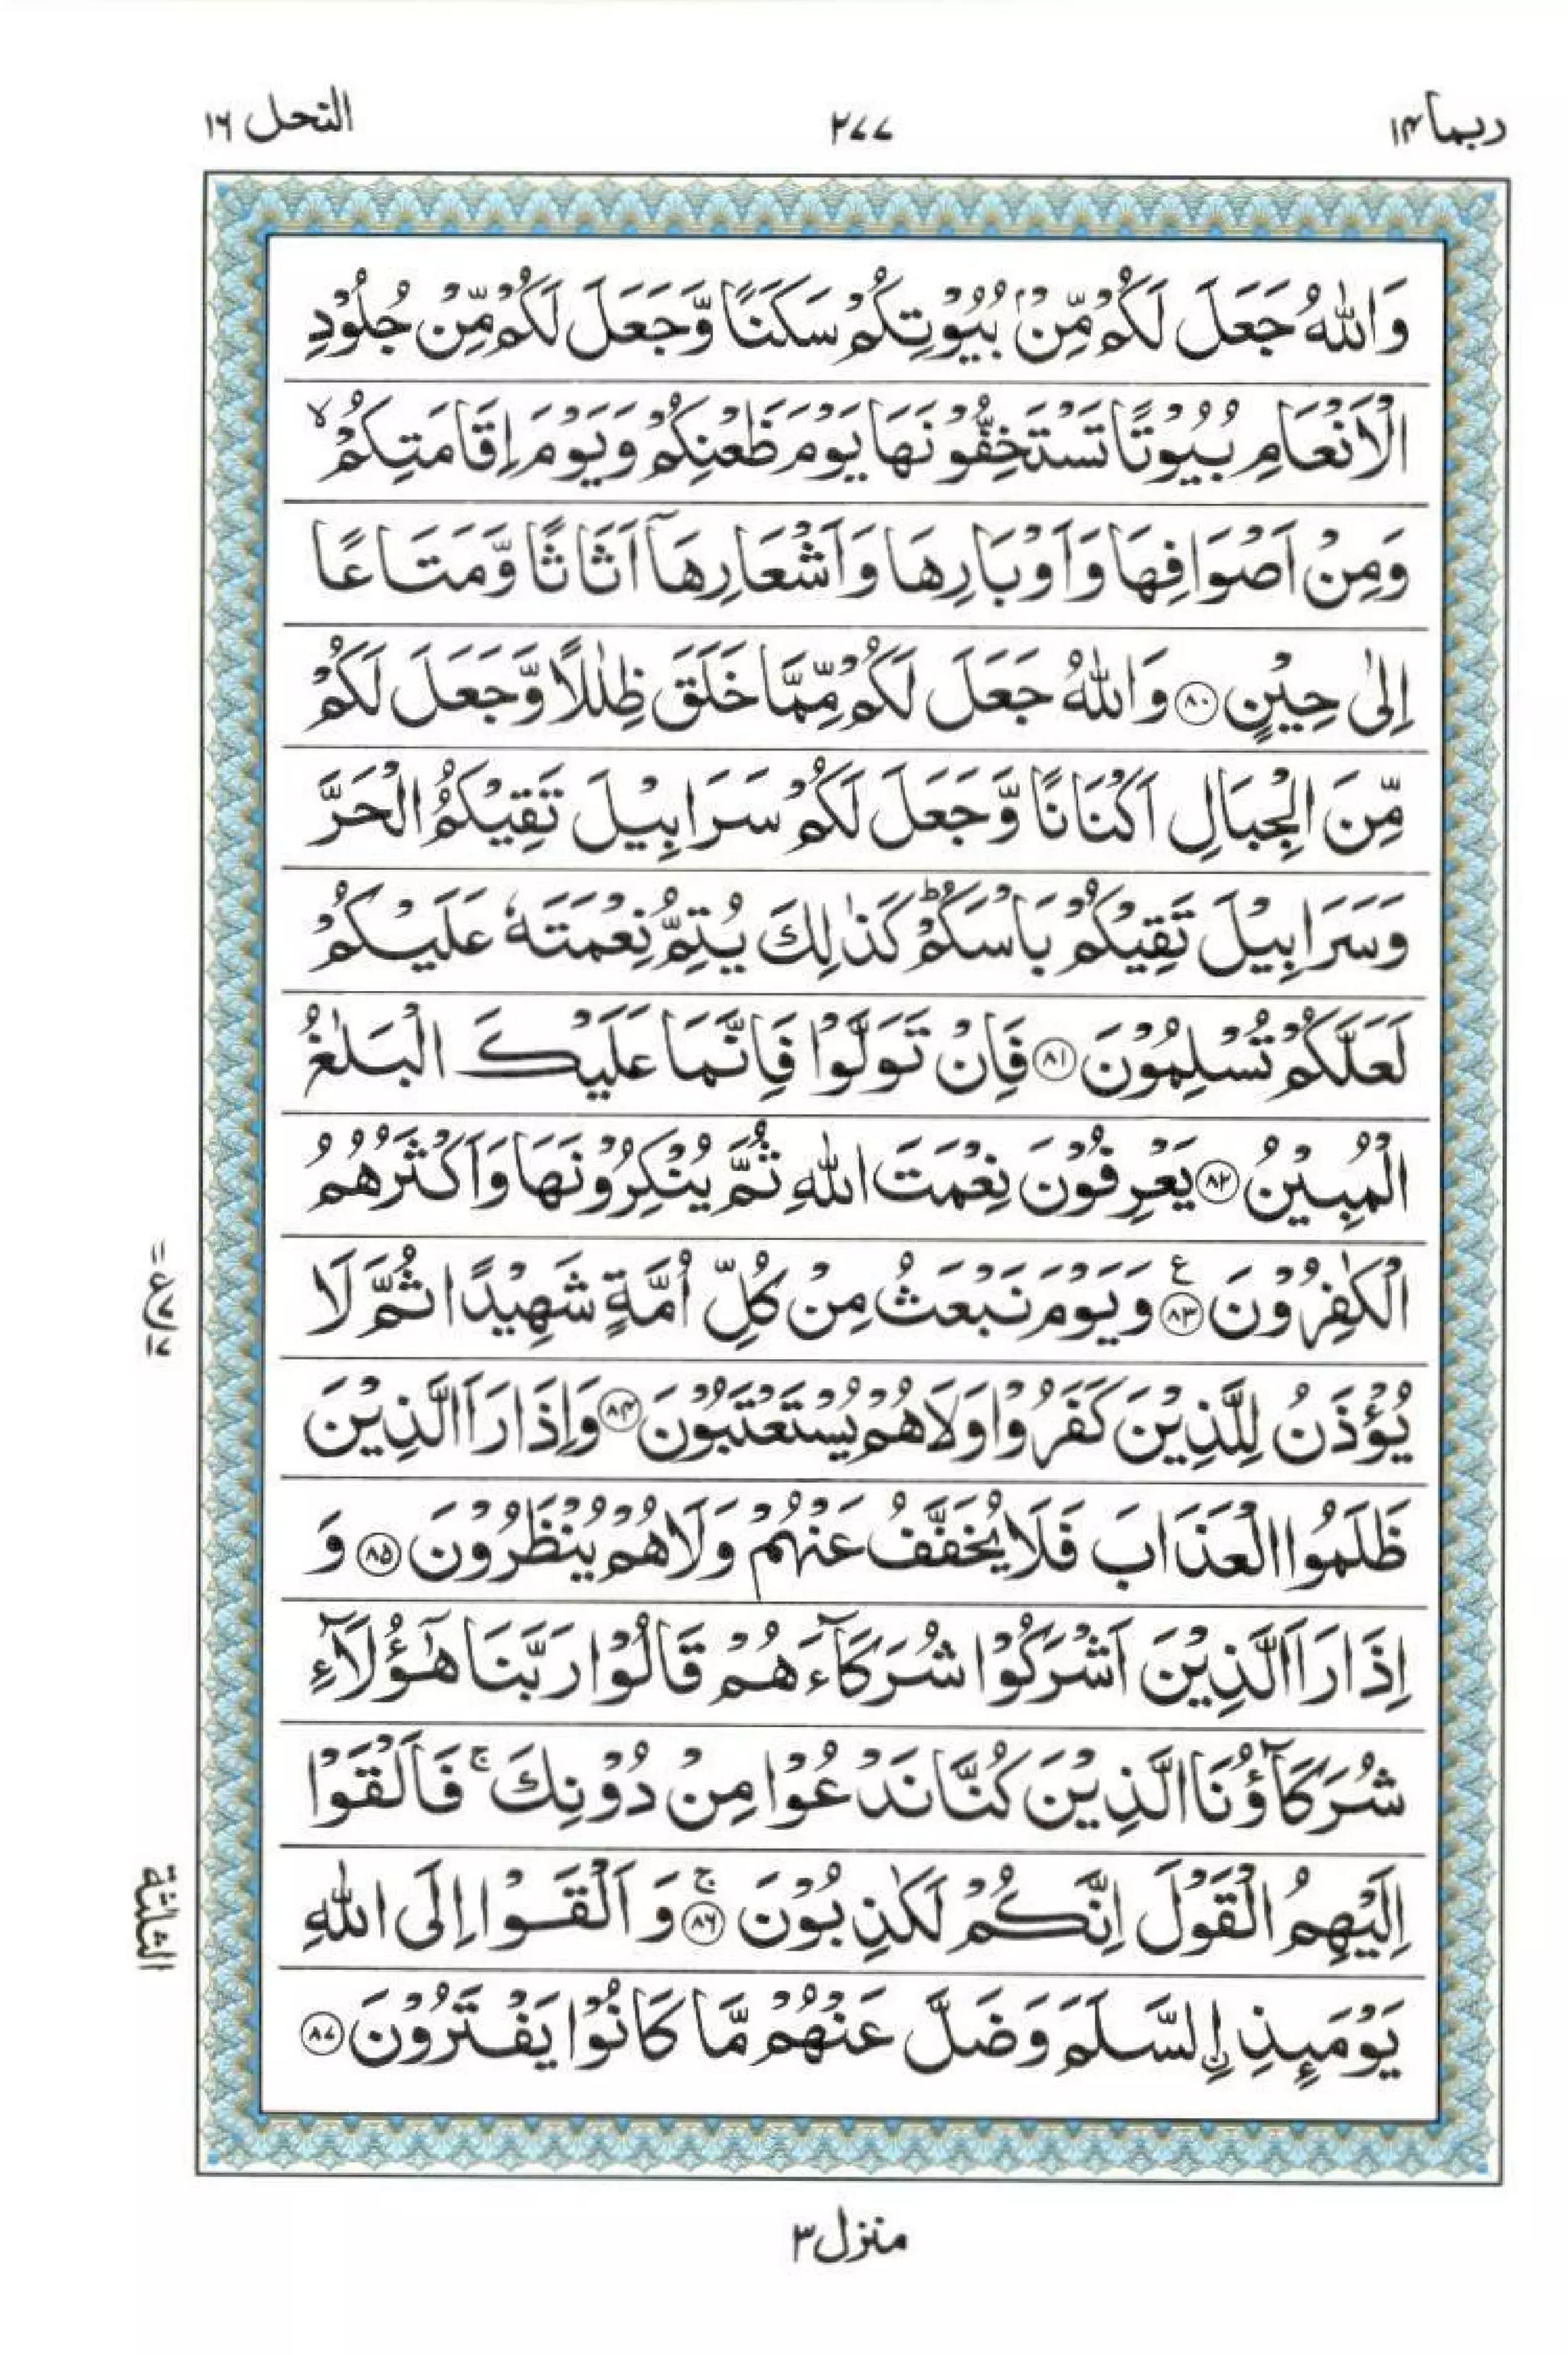 ربما ۱۴
۲۷۷
النحل ۱۶
وَاللّٰهُ جَعَلَ لَكُمْ مِّنْۢ بُيُوْتِكُمْ سَكَنًا وَّجَعَلَ لَكُمْ مِّنْ جُلُوْدِ
الْاَنْعَامِ بُيُوْتًا تَسْتَخِفُّوْنَهَا يَوْمَ ظَعْنِكُمْ وَيَوْمَ اِقَامَتِكُمْ ۙ
وَمِنْ اَصْوَافِهَا وَاَوْبَارِهَا وَاَشْعَارِهَآ اَثَاثًا وَّمَتَاعًا
اِلٰى حِيْنٍ ۝۸۰ وَاللّٰهُ جَعَلَ لَكُمْ مِّمَّا خَلَقَ ظِلٰلًا وَّجَعَلَ لَكُمْ
مِّنَ الْجِبَالِ اَكْنَانًا وَّجَعَلَ لَكُمْ سَرَابِيْلَ تَقِيْكُمُ الْحَرَّ
وَسَرَابِيْلَ تَقِيْكُمْ بَاْسَكُمْ ؕ كَذٰلِكَ يُتِمُّ نِعْمَتَهٗ عَلَيْكُمْ
لَعَلَّكُمْ تُسْلِمُوْنَ ۝۸۱ فَاِنْ تَوَلَّوْا فَاِنَّمَا عَلَيْكَ الْبَلٰغُ
الْمُبِيْنُ ۝۸۲ يَعْرِفُوْنَ نِعْمَتَ اللّٰهِ ثُمَّ يُنْكِرُوْنَهَا وَاَكْثَرُهُمُ
الْكٰفِرُوْنَ ۝۸۳ ع وَيَوْمَ نَبْعَثُ مِنْ كُلِّ اُمَّةٍ شَهِيْدًا ثُمَّ لَا
يُؤْذَنُ لِلَّذِيْنَ كَفَرُوْا وَلَا هُمْ يُسْتَعْتَبُوْنَ ۝۸۴ وَاِذَا رَاَ الَّذِيْنَ
ظَلَمُوا الْعَذَابَ فَلَا يُخَفَّفُ عَنْهُمْ وَلَا هُمْ يُنْظَرُوْنَ ۝۸۵ وَ
اِذَا رَاَ الَّذِيْنَ اَشْرَكُوْا شُرَكَآءَهُمْ قَالُوْا رَبَّنَا هٰٓؤُلَآءِ
شُرَكَآؤُنَا الَّذِيْنَ كُنَّا نَدْعُوْا مِنْ دُوْنِكَ ۚ فَاَلْقَوْا
اِلَيْهِمُ الْقَوْلَ اِنَّكُمْ لَكٰذِبُوْنَ ۝۸۶ۚ وَاَلْقَوْا اِلَى اللّٰهِ
يَوْمَىِٕذِ ۟اِ۟لسَّلَمَ وَضَلَّ عَنْهُمْ مَّا كَانُوْا يَفْتَرُوْنَ ۝۸۷
الثلثة
منزل ۳